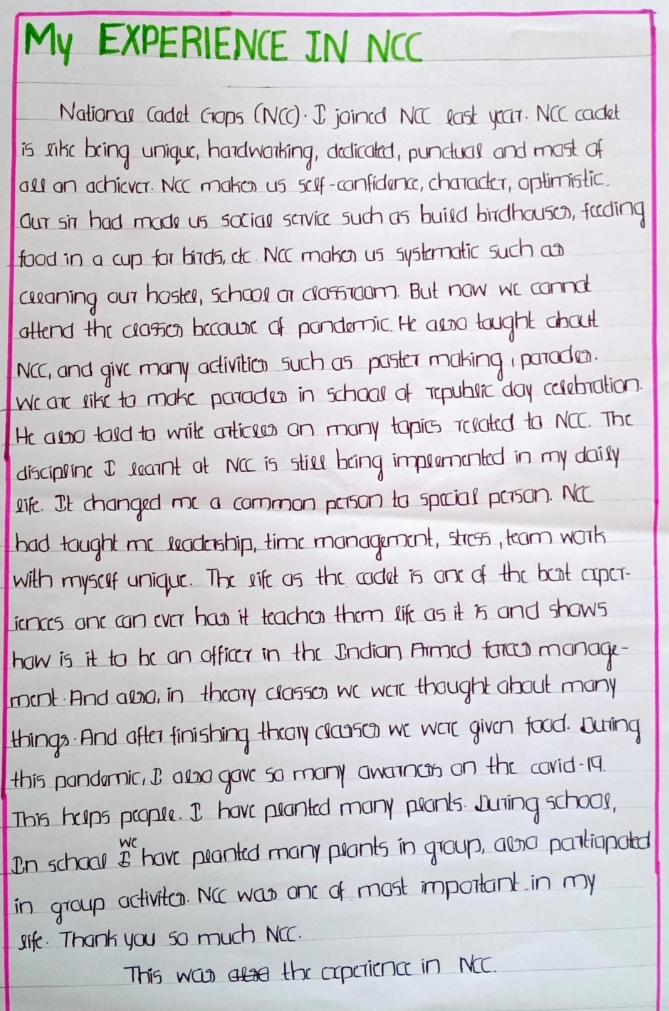 My EXPERIENCE IN NCC
National Cadet Crops (NCC). I joined NCC last year. NCC cadet
is like being unique, hardworking, dedicated, punctual and most of
all an achiever. NCC makes us self-confidence, character, optimistic.
Our sir had made us social service such as build birdhouses, feeding
food in a cup for birds, etc. NCC makes us systematic such as
cleaning our hostel, school or classroom. But now we cannot
attend the classes because of pandemic. He also taught about
NCC, and give many activities such as poster making, parades.
We are like to make parades in school of republic day celebration.
He also told to write articles on many topics related to NCC. The
discipline I learnt at NCC is still being implemented in my daily
life. It changed me a common person to special person. NCC
had taught me leadership, time management, stress, team work
with myself unique. The life as the cadet is one of the best exper-
iences one can ever has it teaches them life as it is and shows
how is it to be an officer in the Indian Armed forces manage-
ment. And also, in theory classes we were thought about many
things. And after finishing theory classes we were given food. During
this pandemic, I also gave so many awarness on the covid-19.
This helps people. I have planted many plants. During school,
In school I we have planted many plants in group, also partiapated
in group activites. NCC was one of most important in my
life. Thank you so much NCC.
This was also the experience in NCC.